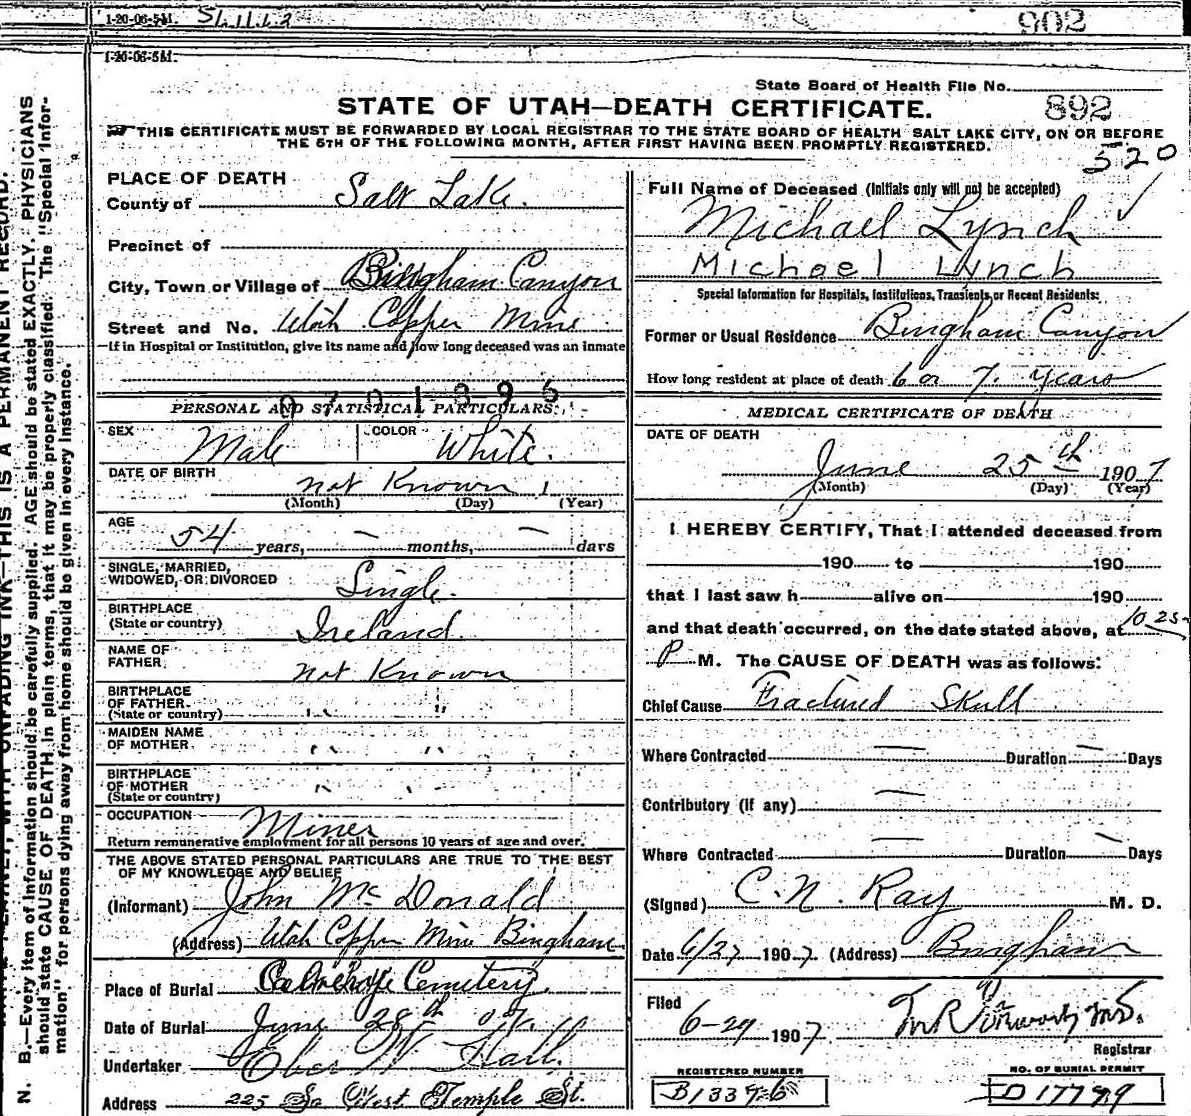 1-20-06-5M.
902
1-20-06-5M.
State Board of Health File No.
STATE OF UTAH—DEATH CERTIFICATE.
892
THIS CERTIFICATE MUST BE FORWARDED BY LOCAL REGISTRAR TO THE STATE BOARD OF HEALTH SALT LAKE CITY, ON OR BEFORE
THE 5TH OF THE FOLLOWING MONTH, AFTER FIRST HAVING BEEN PROMPTLY REGISTERED.
520
PLACE OF DEATH
County of Salt Lake.
Precinct of
City, Town or Village of Bingham Canyon
Street and No. Utah Copper Mine
If in Hospital or Institution, give its name and how long deceased was an inmate
0701896
PERSONAL AND STATISTICAL PARTICULARS:
SEX Male COLOR White.
DATE OF BIRTH not Known
(Month) (Day) (Year)
AGE 54 years, — months, — days
SINGLE, MARRIED,
WIDOWED, OR DIVORCED Single.
BIRTHPLACE
(State or country) Ireland
NAME OF
FATHER not Known
BIRTHPLACE
OF FATHER
(State or country) " "
MAIDEN NAME
OF MOTHER " "
BIRTHPLACE
OF MOTHER
(State or country) " "
OCCUPATION Miner
Return remunerative employment for all persons 10 years of age and over.
THE ABOVE STATED PERSONAL PARTICULARS ARE TRUE TO THE BEST
OF MY KNOWLEDGE AND BELIEF
(Informant) John McDonald
(Address) Utah Copper Mine Bingham
Place of Burial Cemetery.
Date of Burial June 28th 07.
Undertaker Eber W Hall.
Address 225 So West Temple St.
Full Name of Deceased (Initials only will not be accepted)
Michael Lynch
Michael Lynch
Special Information for Hospitals, Institutions, Transients, or Recent Residents:
Former or Usual Residence Bingham Canyon
How long resident at place of death 6 or 7. years
MEDICAL CERTIFICATE OF DEATH
DATE OF DEATH
June 25th 1907
(Month) (Day) (Year)
I HEREBY CERTIFY, That I attended deceased from
190 to 190
that I last saw h alive on 190
and that death occurred, on the date stated above, at 10 25
P M. The CAUSE OF DEATH was as follows:
Chief Cause Fractured Skull
Where Contracted — Duration — Days
Contributory (If any) —
Where Contracted — Duration — Days
(Signed) C. N. Ray M. D.
Date 6/27 1907. (Address) Bingham
Filed
6-29 1907
Registrar
REGISTERED NUMBER
B13396
NO. OF BURIAL PERMIT
D17799
N. B.—Every item of information should be carefully supplied. AGE should be stated EXACTLY. PHYSICIANS
should state CAUSE OF DEATH in plain terms, that it may be properly classified. The "Special Infor-
mation" for persons dying away from home should be given in every instance.